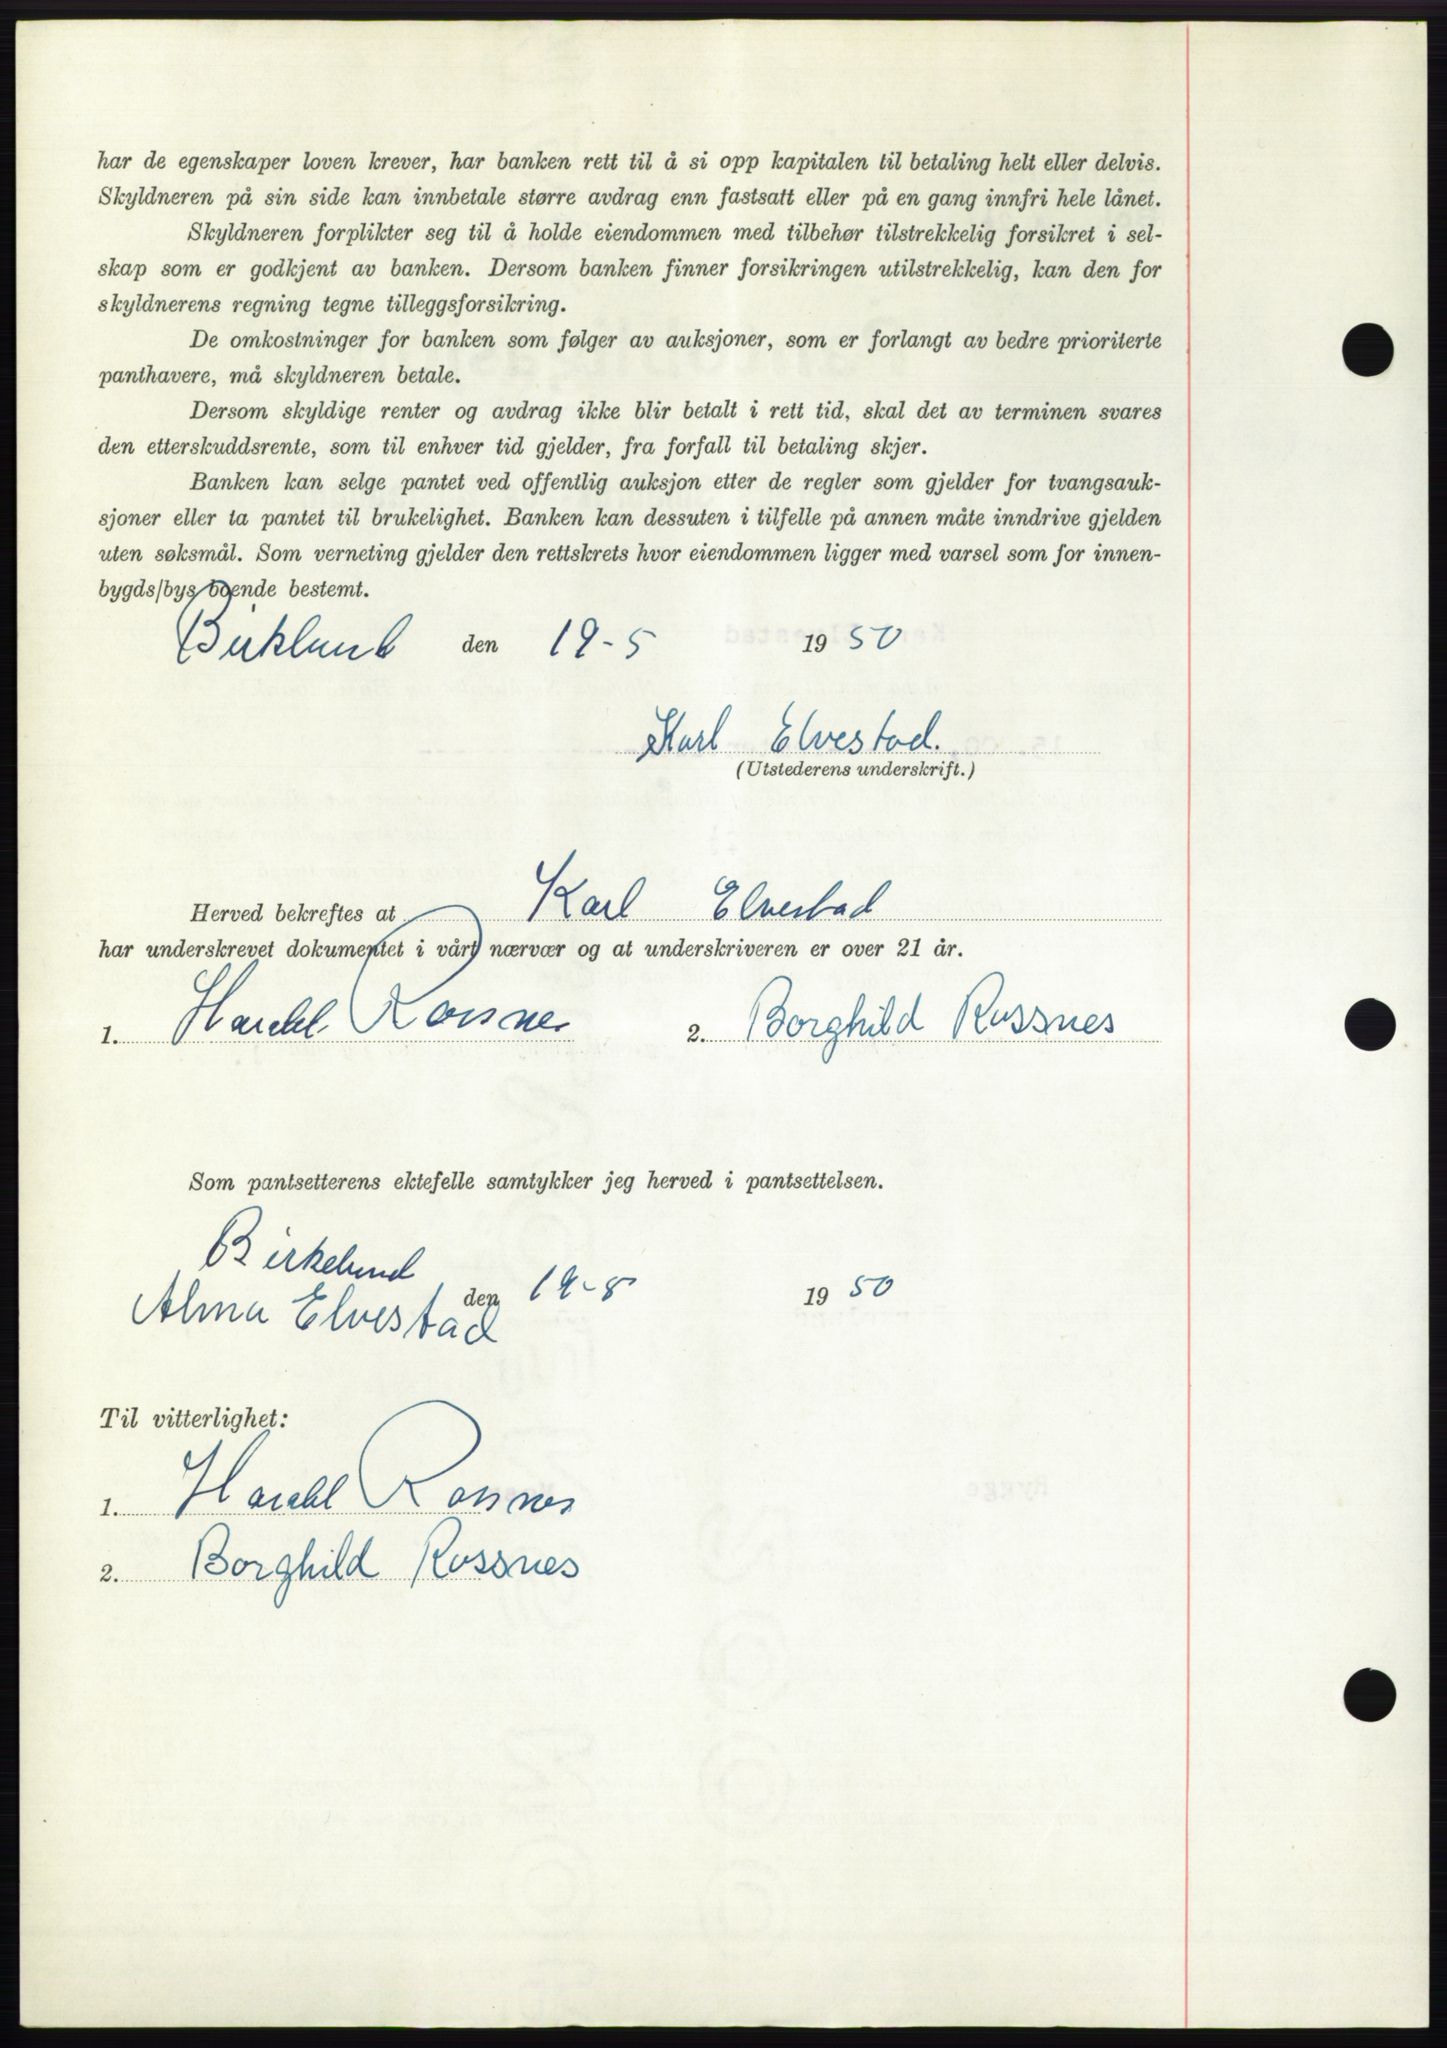 har de egenskaper loven krever, har banken rett til å si opp kapitalen til betaling helt eller delvis.
Skyldneren på sin side kan innbetale større avdrag enn fastsatt eller på en gang innfri hele lånet.
Skyldneren forplikter seg til å holde eiendommen med tilbehør tilstrekkelig forsikret i sel-
skap som er godkjent av banken. Dersom banken finner forsikringen utilstrekkelig, kan den for
skyldnerens regning tegne tilleggsforsikring.
De omkostninger for banken som følger av auksjoner, som er forlangt av bedre prioriterte
panthavere, må skyldneren betale.
Dersom skyldige renter og avdrag ikke blir betalt i rett tid, skal det av terminen svares
den etterskuddsrente, som til enhver tid gjelder, fra forfall til betaling skjer.
Banken kan selge pantet ved offentlig auksjon etter de regler som gjelder for tvangsauk-
sjoner eller ta pantet til brukelighet. Banken kan dessuten i tilfelle på annen måte inndrive gjelden
uten søksmål. Som verneting gjelder den rettskrets hvor eiendommen ligger med varsel som for innen-
bygds/bys boende bestemt.
Birklund den 19-5 1950
Karl Elvestad.
(Utstederens underskrift.)
Herved bekreftes at Karl Elvestad
har underskrevet dokumentet i vårt nærvær og at underskriveren er over 21 år.
1. Harald Rossnes 2. Borghild Rossnes
Som pantsetterens ektefelle samtykker jeg herved i pantsettelsen.
Birkelund
den 19-5 1950
Alma Elvestad
Til vitterlighet:
1. Harald Rossnes
2. Borghild Rossnes